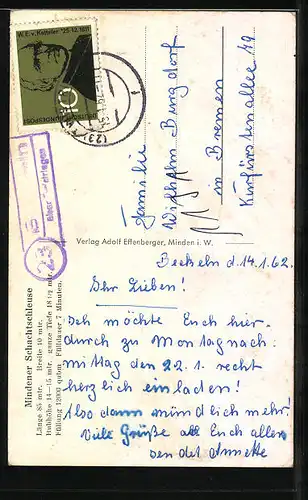 W.E.v. Ketteler *25.12.1811
10
DEUTSCHE BUNDESPOST
(23)
über
Familie
Wilhelm Burgdorf
in Bremen
Kurfürstenallee 19
Verlag Adolf Effenberger, Minden i. W.
Mindener Schachtschleuse
Länge 85 mtr. Breite 10 mtr.
Hubhöhe 14–15 mtr. ganze Tiefe 18 1/2 mtr.
Füllung 12000 qcbm Fülldauer 7 Minuten.
d. 14.1.62.
Ihr Lieben!
Ich möchte Euch hier-
durch zu Montagnach-
mittag den 22.1. recht
herzlich einladen!
Also dann mündlich mehr!
Viele Grüße all Euch allen
sendet Annette